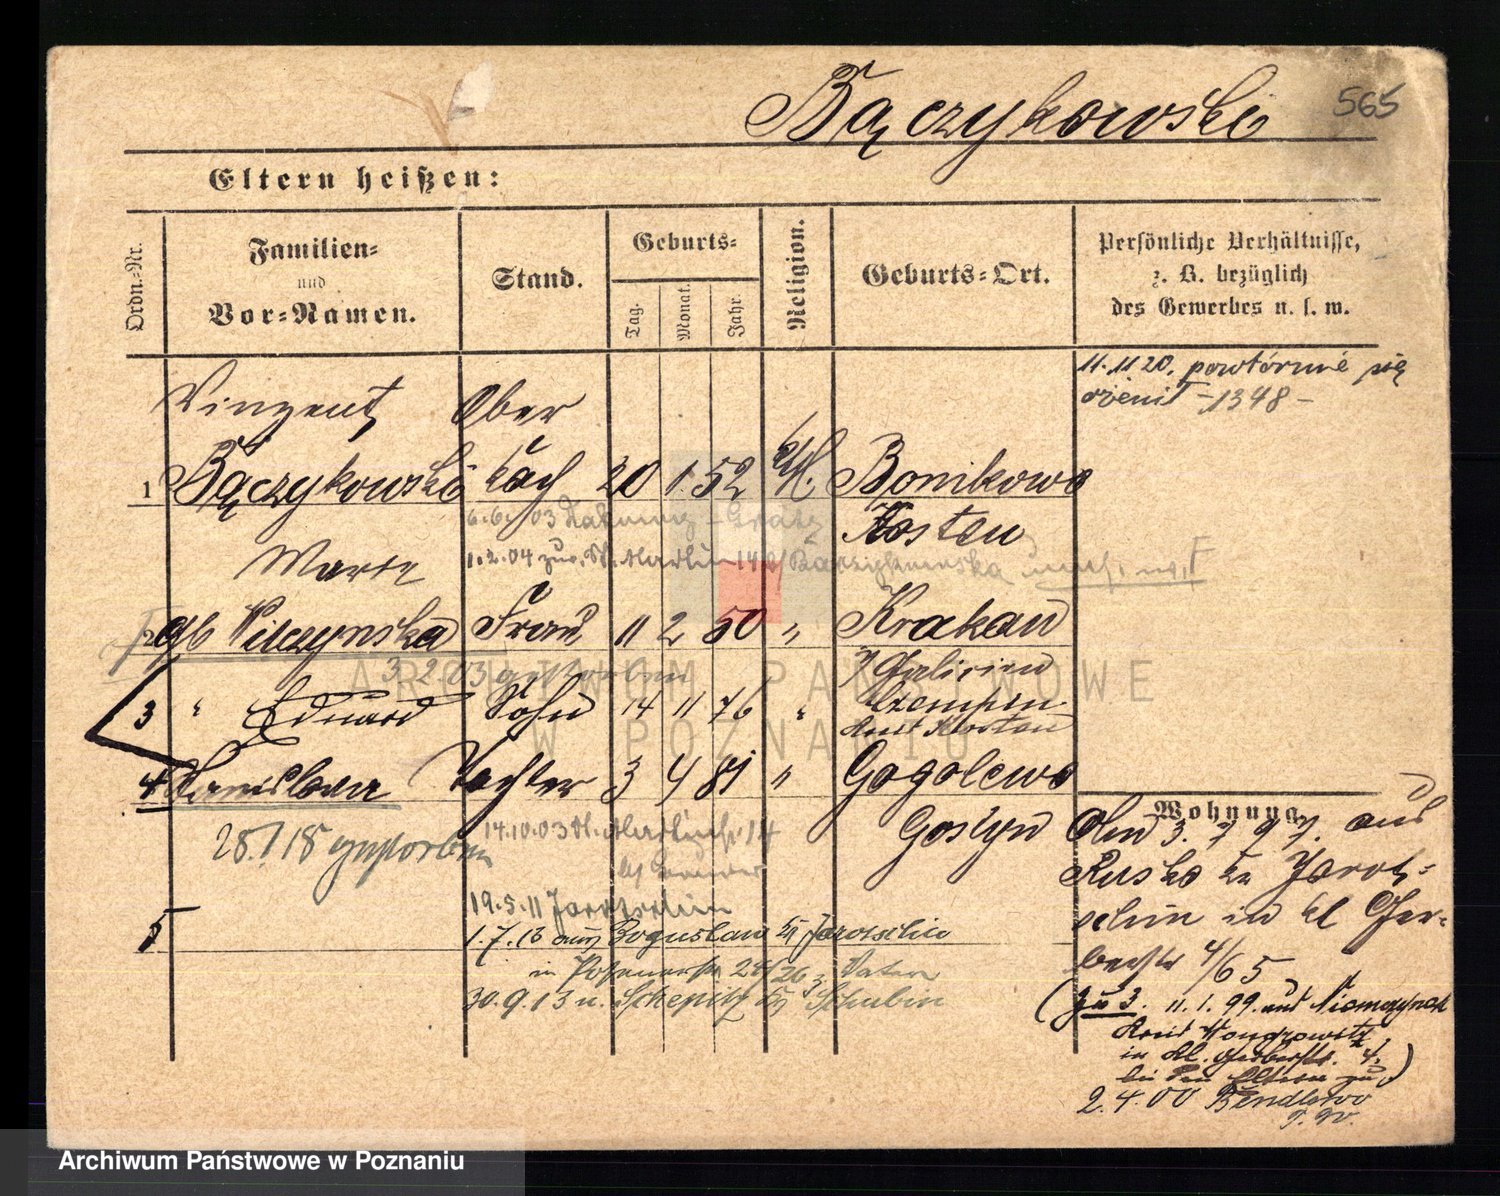 Bączykowski 565
Eltern heißen:
Ordn.-Nr.
Familien-
und
Vor-Namen.
Stand.
Geburts-
Tag.
Monat.
Jahr.
Religion.
Geburts-Ort.
Persönliche Verhältnisse,
z. B. bezüglich
des Gewerbes u. s. w.
11.11 20. powtórnie się
ożenił -1348-
Vinzent Ober
1 Bączykowski koch 20 1. 52 Bonikowo
Kosten
6.6. 03
Marie 1.2.04 Martin 14
2 gb Wilczynska Frau 11 2 50 " Krakau
3 2 03 gestorben Galizien
3 " Eduard Sohn 14 11 76 " Czempin
Kosten
4 Stanislava Tochter 3 4 81 " Gogolewo
Gostyn
28.7 18 gestorben 14.10.03 14
19.5.11 Jarotschin
5 1.7.13 Boguslaw Jarotschin
in 24/26
30.9.13 n. Schepitz Schubin
Wohnung.
Den 3. 7 97. aus
Rusko Kr Jarot-
schin in kl Ger-
berstr 4/65
(zu 3. 11.1.99. aus Niemczynek
Kreis Wongrowitz
in kl. Gerberstr. 4.
bei den Eltern zu)
2.4.00 Bendlewo
P. W.
ARCHIWUM PAŃSTWOWE
W POZNANIU
Archiwum Państwowe w Poznaniu